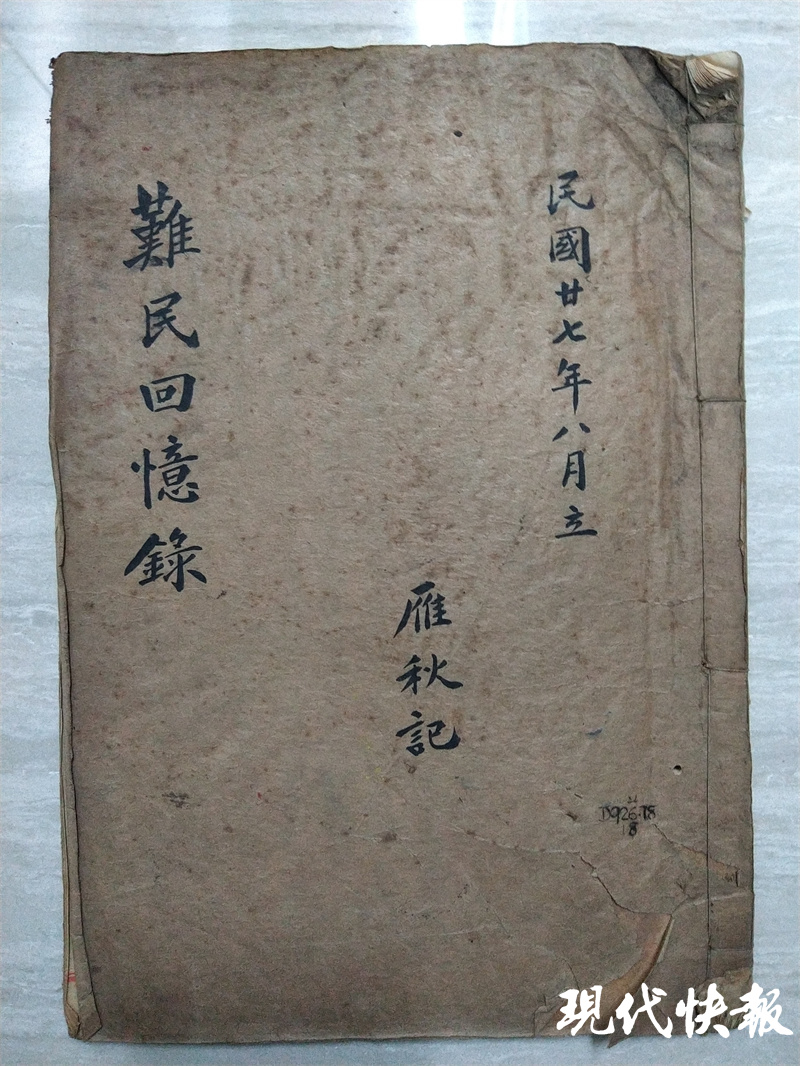 民國廿七年八月立
雁秋記
難民回憶錄
現代快報